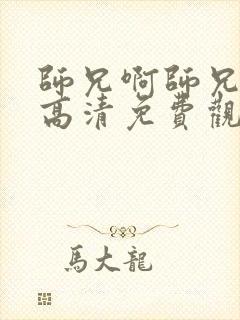 師兄啊師兄
高清免費觀
馬大龍